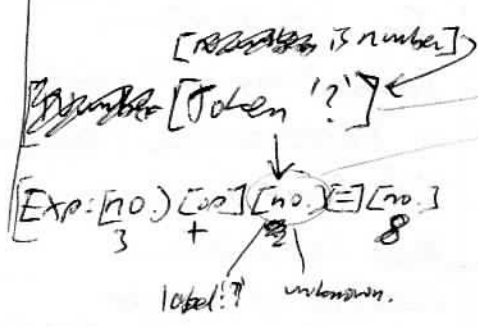 [is number]
[Token '?']
[Exp: [no.] [op] [no.] [=] [no.]
3 + 8
label: '?' unknown.